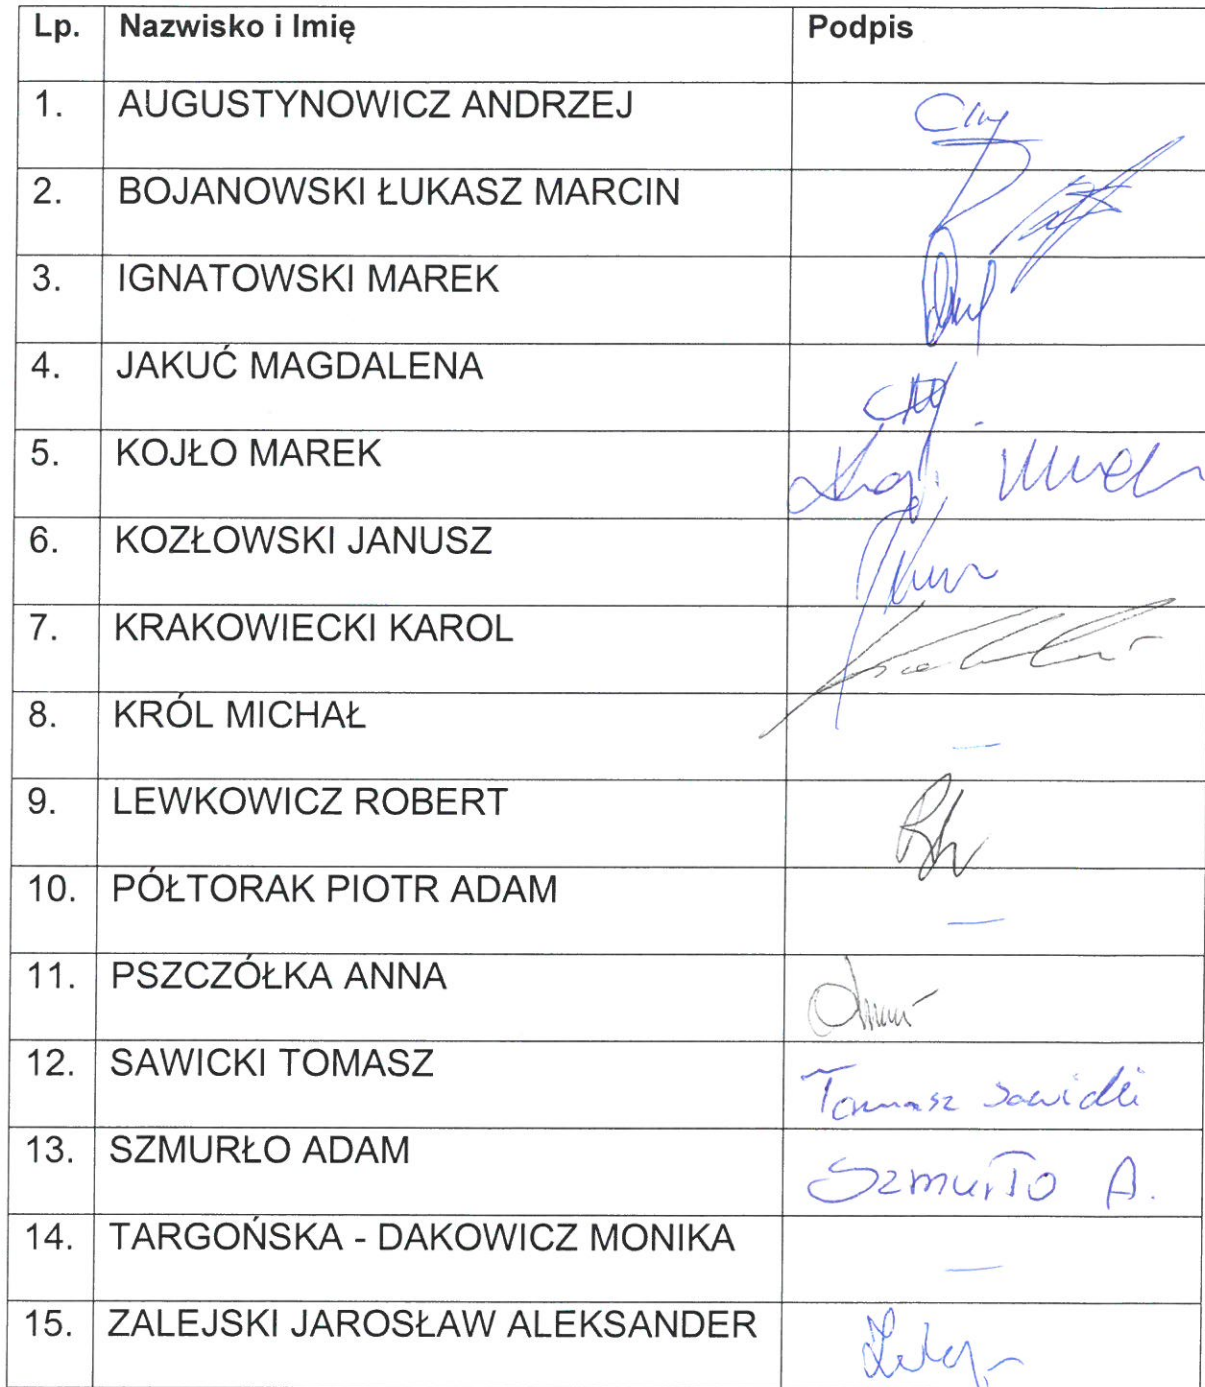 Lp. Nazwisko i Imię Podpis
1. AUGUSTYNOWICZ ANDRZEJ
2. BOJANOWSKI ŁUKASZ MARCIN
3. IGNATOWSKI MAREK
4. JAKUĆ MAGDALENA
5. KOJŁO MAREK
6. KOZŁOWSKI JANUSZ
7. KRAKOWIECKI KAROL
8. KRÓL MICHAŁ —
9. LEWKOWICZ ROBERT
10. PÓŁTORAK PIOTR ADAM —
11. PSZCZÓŁKA ANNA
12. SAWICKI TOMASZ Tomasz Sawicki
13. SZMURŁO ADAM Szmurło A.
14. TARGOŃSKA - DAKOWICZ MONIKA —
15. ZALEJSKI JAROSŁAW ALEKSANDER